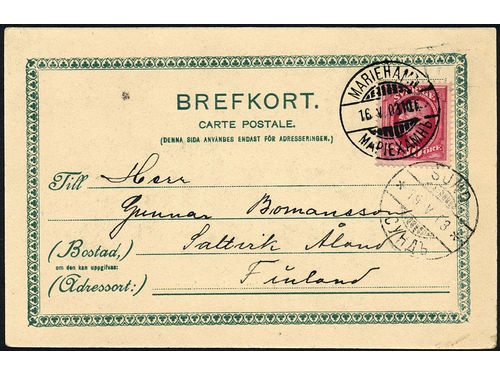 BREFKORT.
CARTE POSTALE.
(DENNA SIDA ANVÄNDES ENDAST FÖR ADRESSERINGEN.)
MARIEHAMN
16 V 03
МАРІЕХАМНЪ
SVERIGE
ÖRE
Till Herr
SUND
Gunnar Bomansson
СУНДЪ
(Bostad,) Saltvik Åland
om den kan uppgifvas:
(Adressort:) Finland